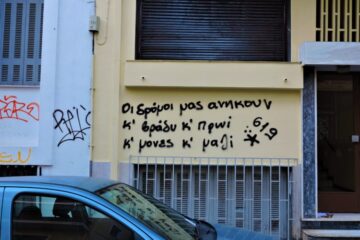 Οι δρόμοι μας ανήκουν
κ' βράδυ κ' πρωί
κ' μόνες κ' μαζί